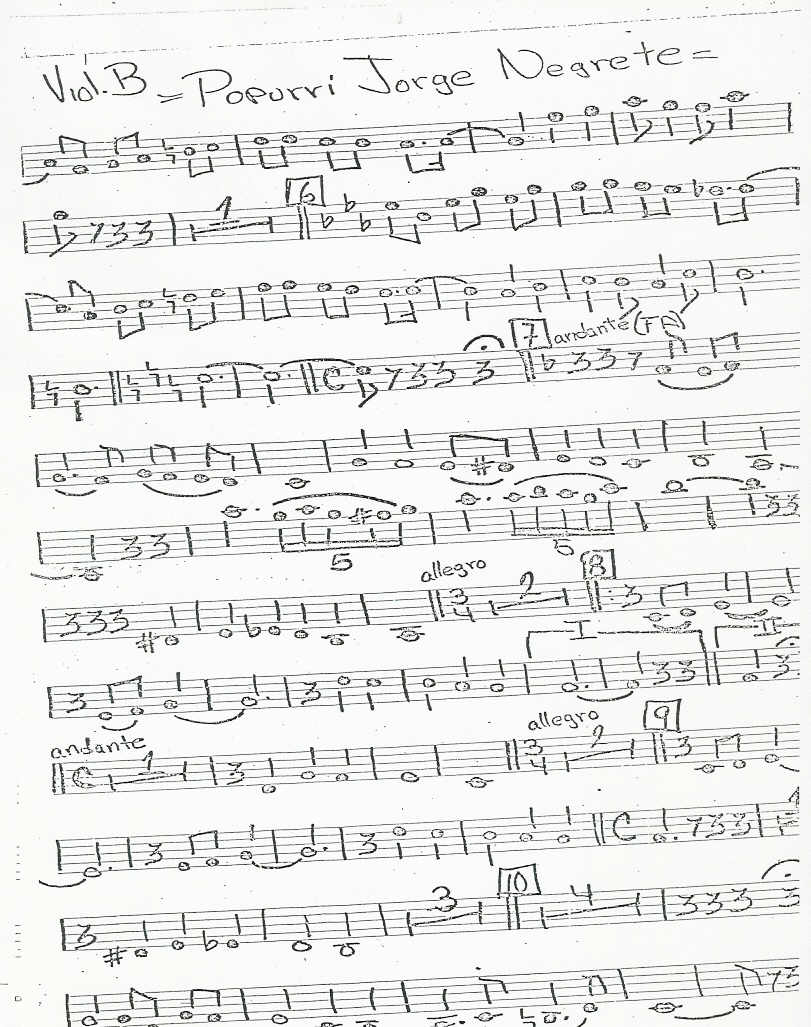 Viol. B = Popurri Jorge Negrete =
1 6
7 andante (FA)
5 5
allegro 3/4 2 8
I II
andante
1 allegro 3/4 2 9
1
3 10 4